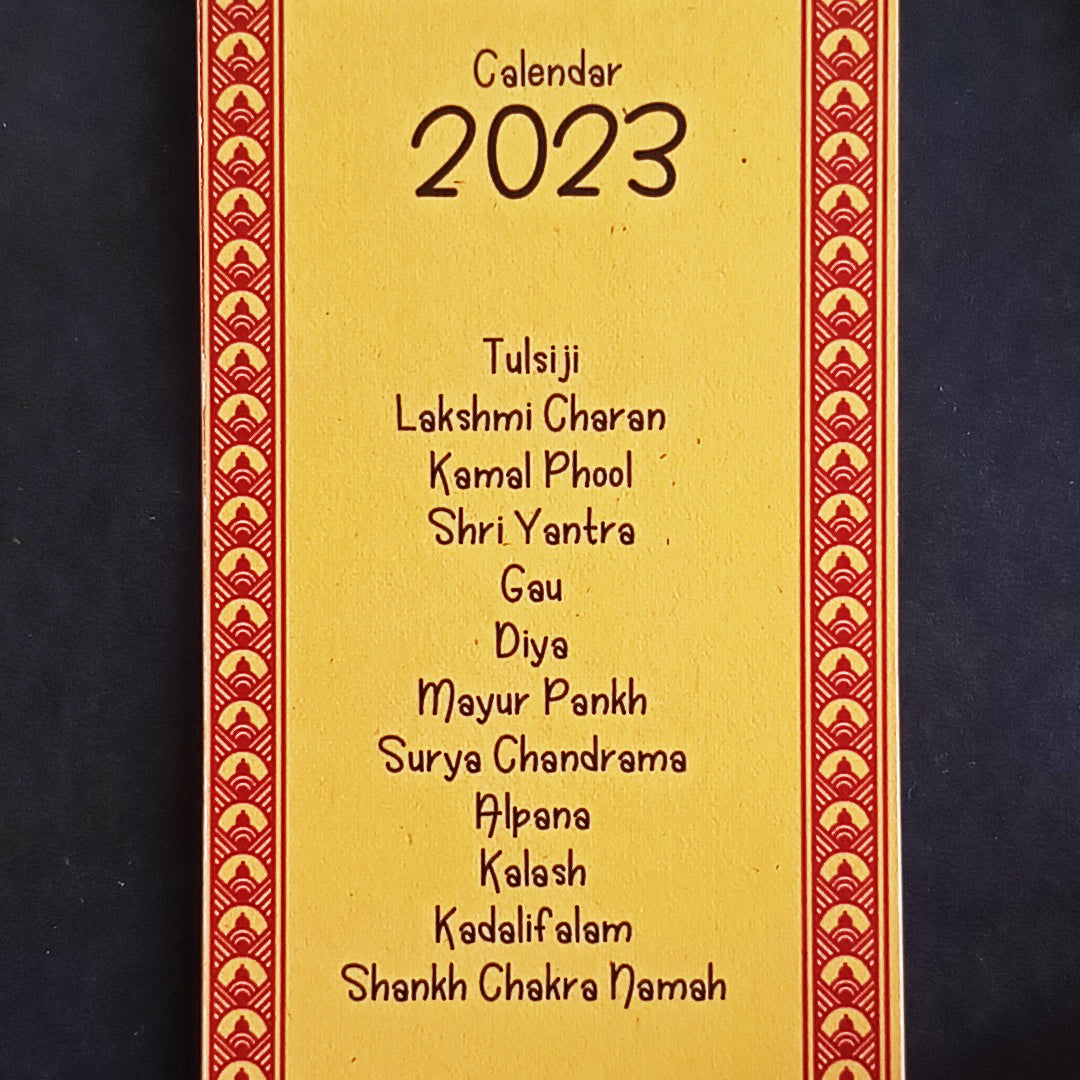 Calendar
2023
Tulsiji
Lakshmi Charan
Kamal Phool
Shri Yantra
Gau
Diya
Mayur Pankh
Surya Chandrama
Alpana
Kalash
Kadalifalam
Shankh Chakra Namah